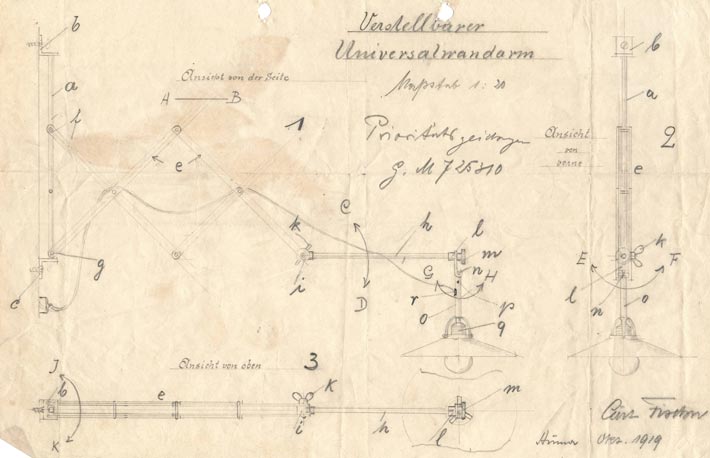 Verstellbarer
Universalwandarm
Maßstab 1:20
Ansicht von der Seite
A B
1
b
a
f
e
g
c
C
D
k
i
h
l
m
n
G H
r
o
p
q
G. M 725310
Ansicht
von
vorne
2
b
a
e
k
E F
l
n
o
Ansicht von oben
3
J
b
K
e
k
i
h
l
m
Curt Fischer
Okt. 1919